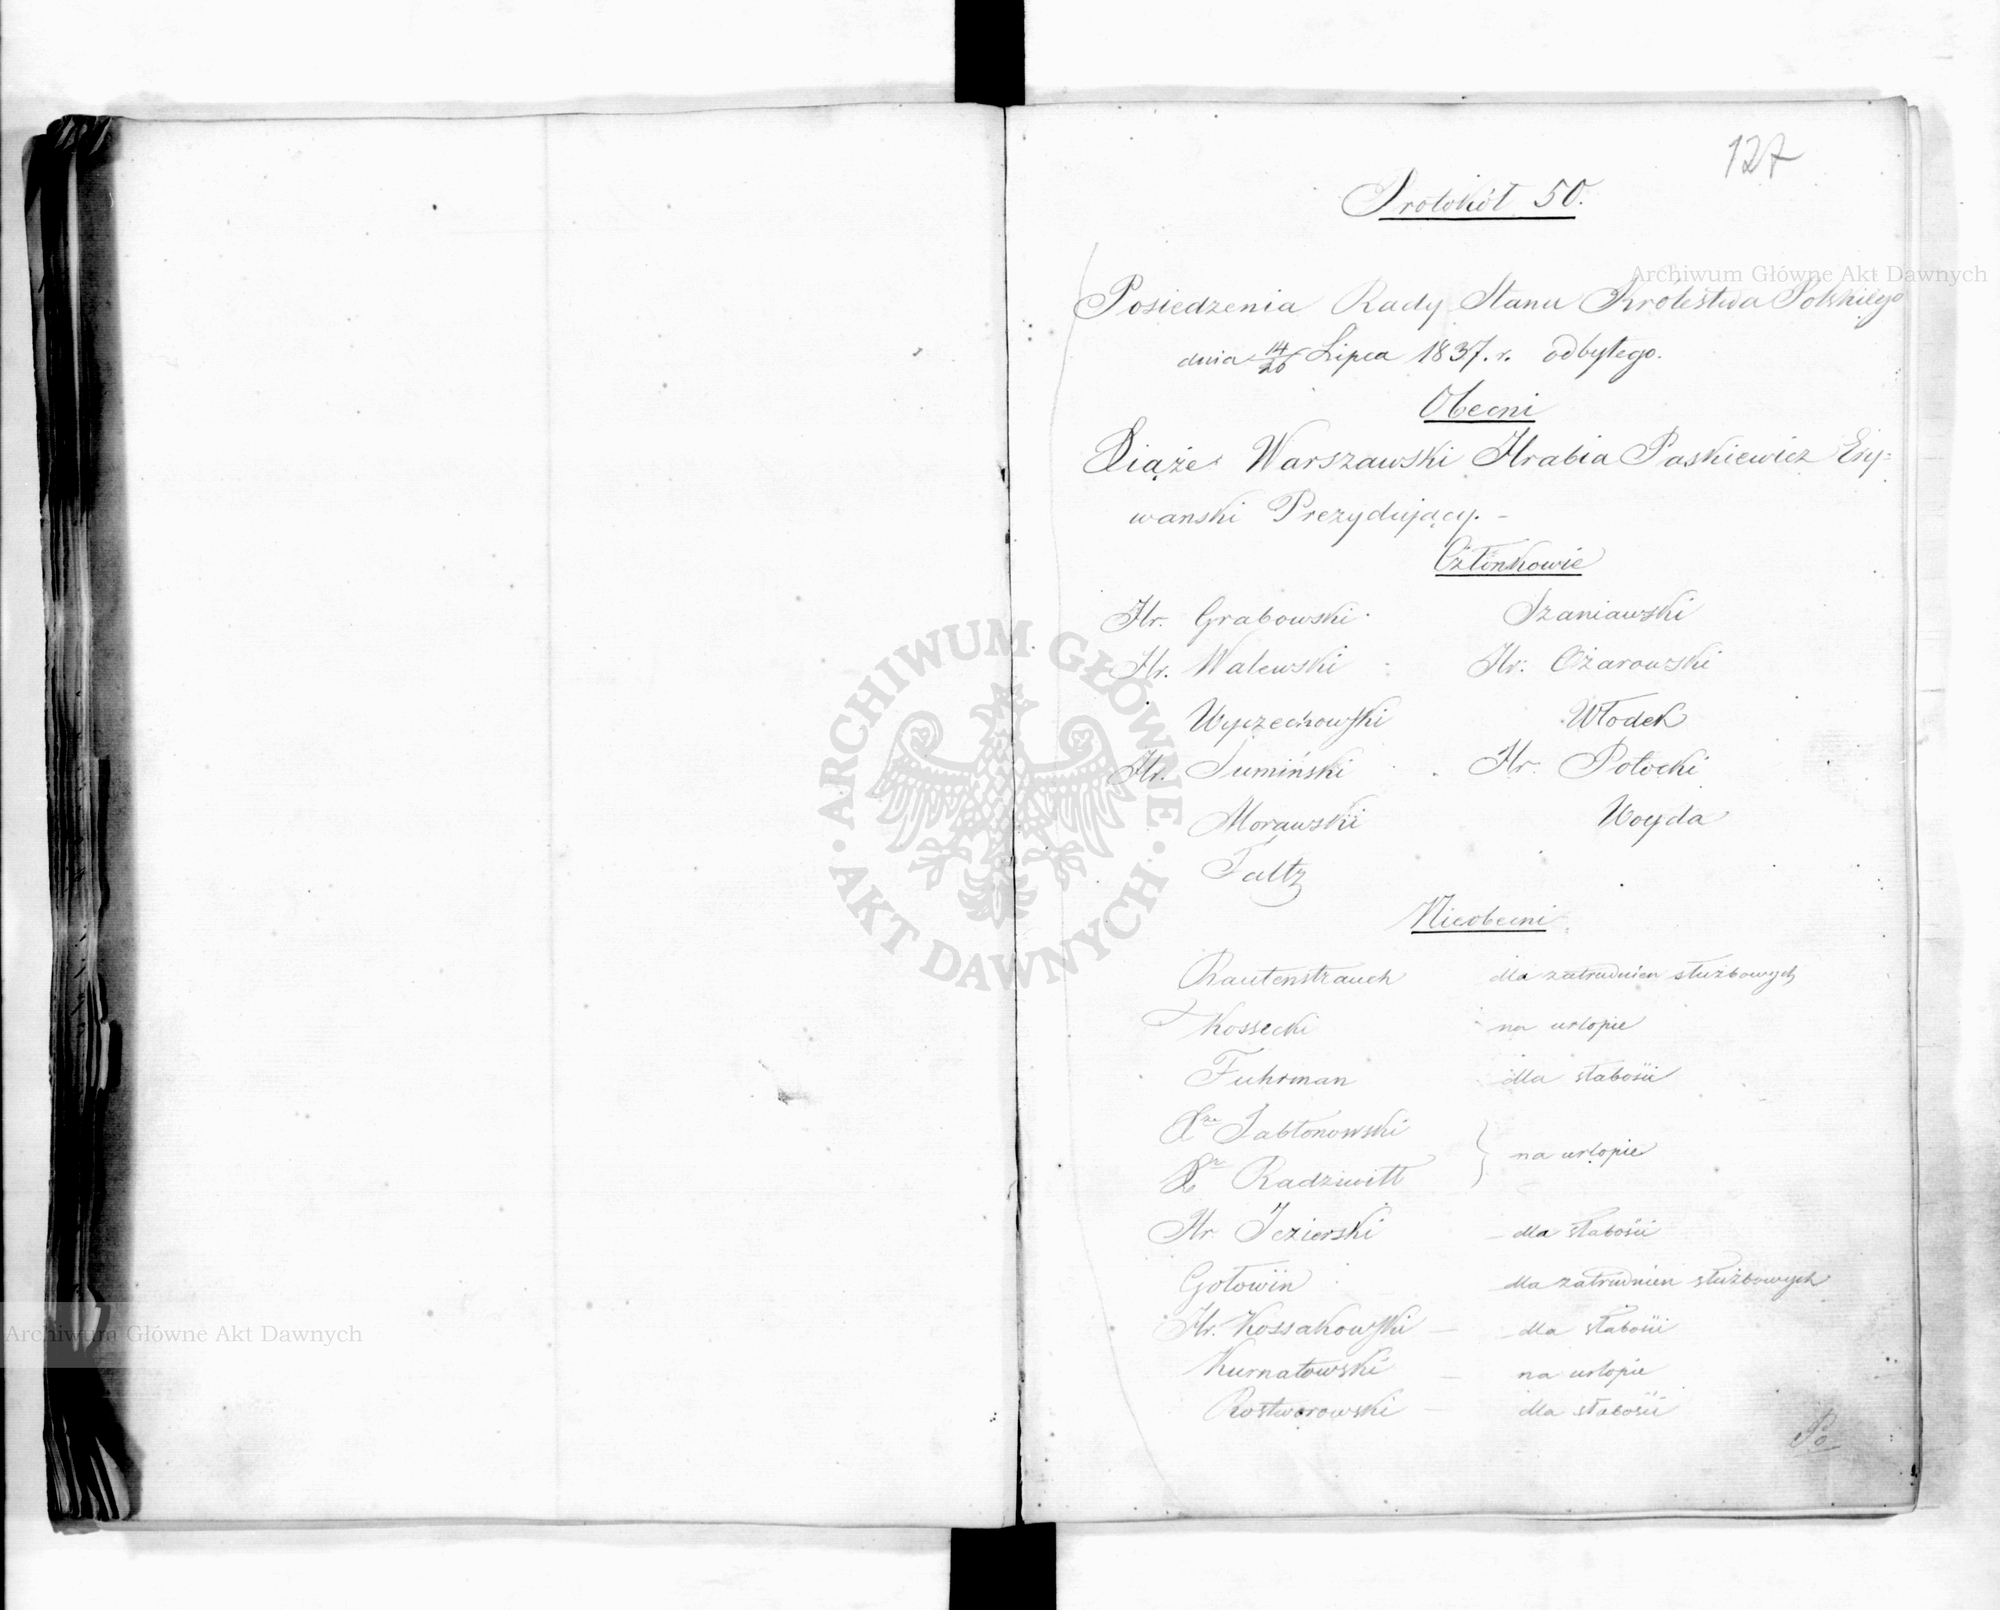 127
Protokół 50.
Archiwum Główne Akt Dawnych
Posiedzenia Rady Stanu Królestwa Polskiego
dnia 14/26 Lipca 1837. r. odbytego.
Obecni
Xiąże Warszawski Hrabia Paskiewicz Ery=
wanski Prezydujący. -
Członkowie
Hr. Grabowski Szaniawski
Hr. Walewski Hr. Ożarowski
Wyczechowski Włodek
Hr. Sumiński Hr. Potocki
Morawski Woyda
Faltz
ARCHIWUM GŁÓWNE
AKT DAWNYCH
Nieobecni
Rautenstrauch dla zatrudnien służbowych
Kossecki na urlopie
Fuhrman dla słabości
Xże Jabłonowski
na urlopie
Xże Radziwiłł
Hr. Jezierski - dla słabości
Gołowin dla zatrudnien służbowych
Hr. Kossakowski - dla słabości
Kurnatowski - na urlopie
Rostworowski - dla słabości
Archiwum Główne Akt Dawnych
Po